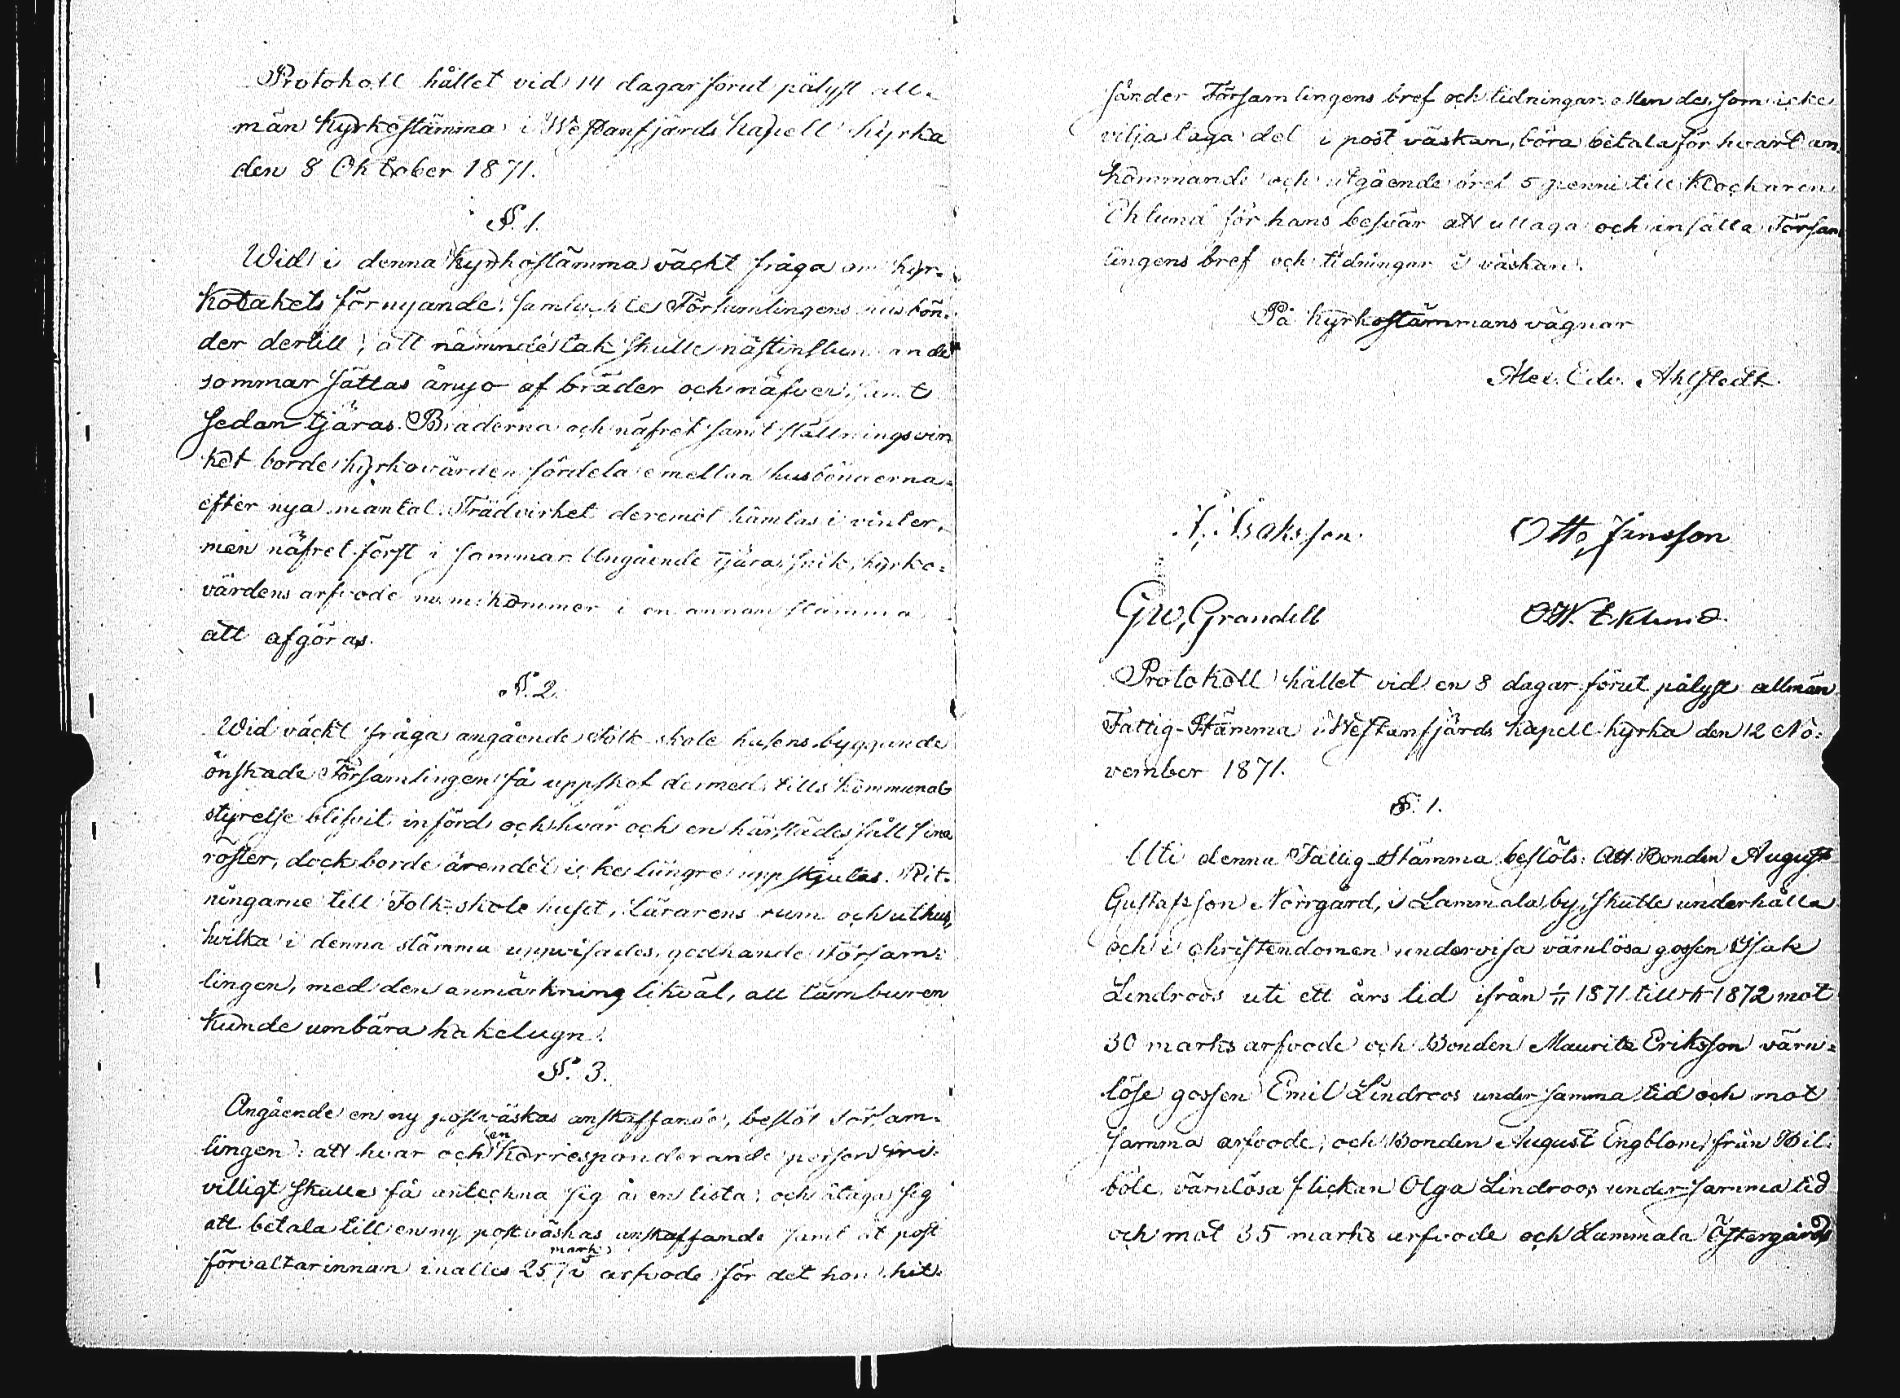 Protokoll hållet vid 14 dagar förut pålyst all-
män Kyrkostämma i Westanfjärds kapell kyrka
den 8 Oktober 1871.
§. 1.
Wid i denna Kyrkostämma väckt fråga om kyr-
kotakets förnyande, samtyckte Församlingens husbön-
der dertill, att nämnde tak skulle nästinstundande
sommar sättas ånyo af bräder och näfver, samt
sedan tjäras. Bräderna och näfret samt ställningsvir-
ket borde kyrkovärden fördela emellan husbönderna
efter nya mantal. Trädvirket deremot hämtas i vinter,
men näfret först i sommar. Angående tjäran, spik, kyrko-
värdens arfvode m.m. kommer i en annan stämma
att afgöras.
§. 2.
Wid väckt fråga angående Folkskole husens byggande
önskade Församlingen få uppskof dermed, tills Kommunal-
styrelse blifvit införd och hvar och en härstädes fått sina
röster, dock borde ärendet icke längre uppskjutas. Rit-
ningarne till Folkskole huset, lärarens rum och uthus,
hvilka i denna stämma uppvisades, godkände Försam-
lingen, med den anmärkning likväl, att tamburen
kunde umbära kakelugn.
§. 3.
Angående en ny postväskas anskaffande, beslöt Försam-
lingen: att hvar och en Korresponderande person fri-
villigt skulle få anteckna sig å en lista, och åtaga sig
att betala till en ny postväskas anskaffande samt åt post
förvaltarinnan inalles 25 mark i arfvode för det hon hit-
sänder Församlingens bref och tidningar. Men de, som icke
vilja taga del i post väskan, böra betala för hvart an-
kommande och utgående bref 5 penni till Klockaren
Eklund för hans besvär att uttaga och insätta Försam-
lingens bref och tidningar i väskan.
På Kyrkostämmans vägnar
Alex. Edv. Ahlstedt.
I. Isaksson. Otto Jinsson
Gw, Grandell O.W. Eklund.
Protokoll hållet vid en 8 dagar förut pålyst allmän
Fattig-Stämma i Westanfjärds kapell kyrka den 12 No-
vember 1871.
§. 1.
Uti denna Fattig-Stämma beslöts: Att Bonden August
Gustafsson Norrgård, i Lammala by, skulle underhålla
och i christendomen undervisa värnlösa gossen Isak
Lindroos uti ett års tid ifrån 1/11 1871 till 1/11 1872 mot
30 marks arfvode och Bonden Maurits Eriksson värn-
löse gossen Emil Lindroos under samma tid och mot
samma arfvode, och Bonden August Engblom från Bil-
böle värnlösa flickan Olga Lindroos under samma tid
och mot 35 marks arfvode och Lammala Östergårds